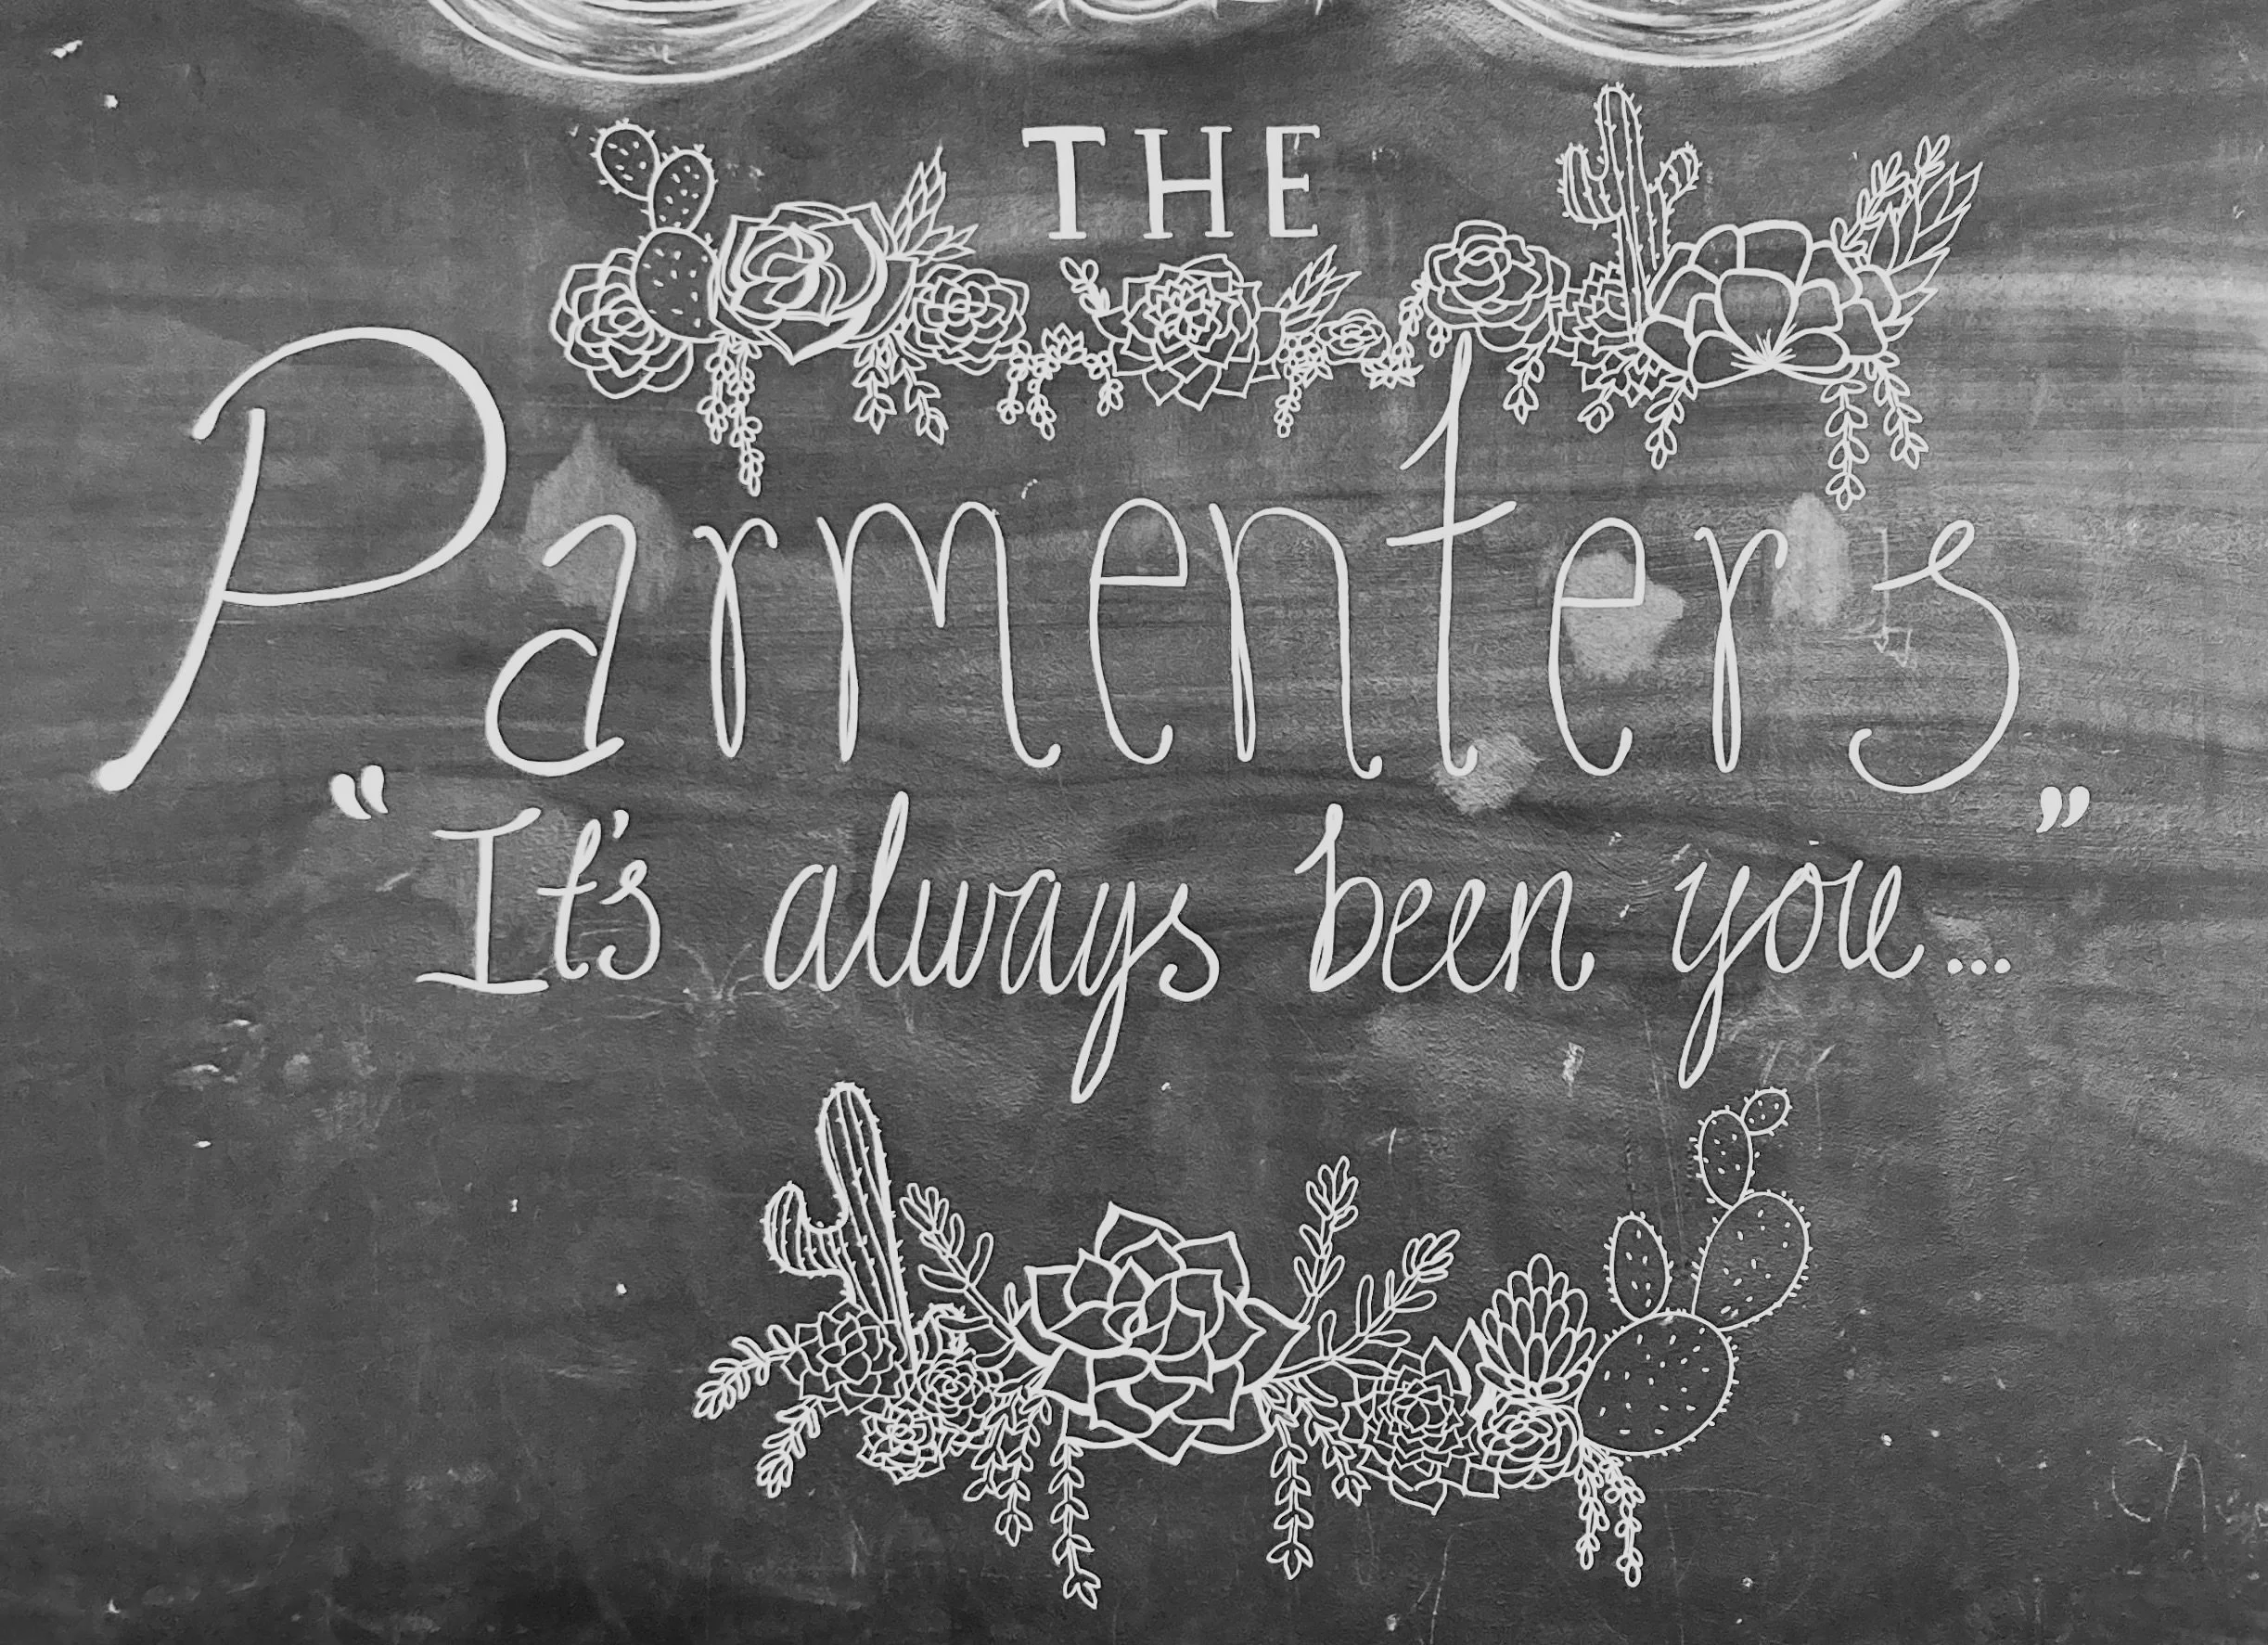 THE
Parmenters
"It's always been you..."